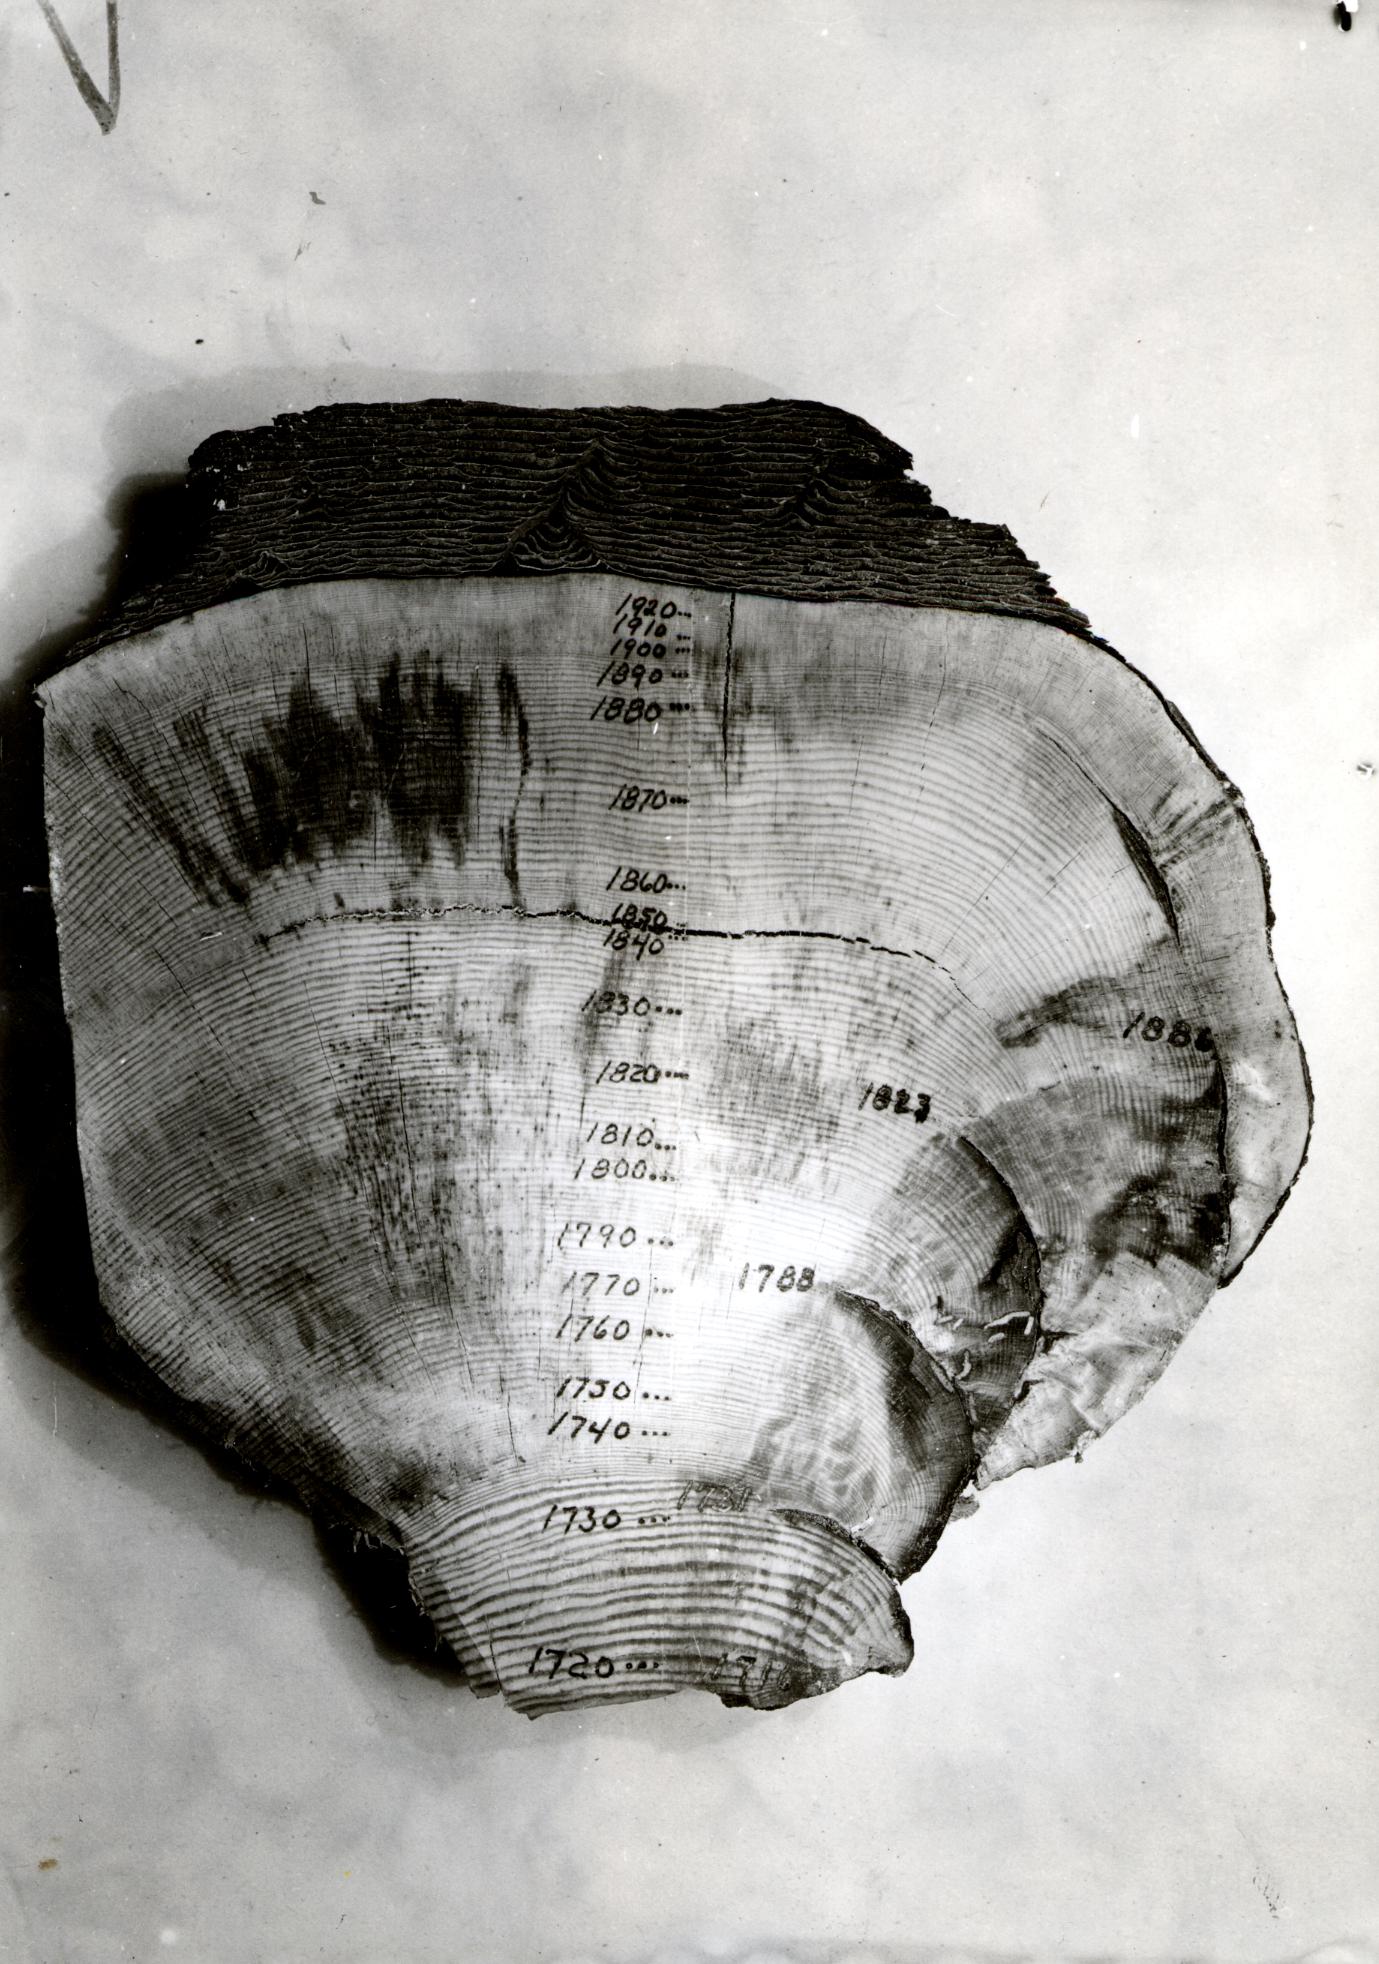 1920...
1910...
1900...
1890...
1880...
1870...
1860...
1850...
1840...
1830...
1820...
1810...
1800...
1790...
1770...
1760...
1750...
1740...
1730...
1720...
1886
1823
1788
1731